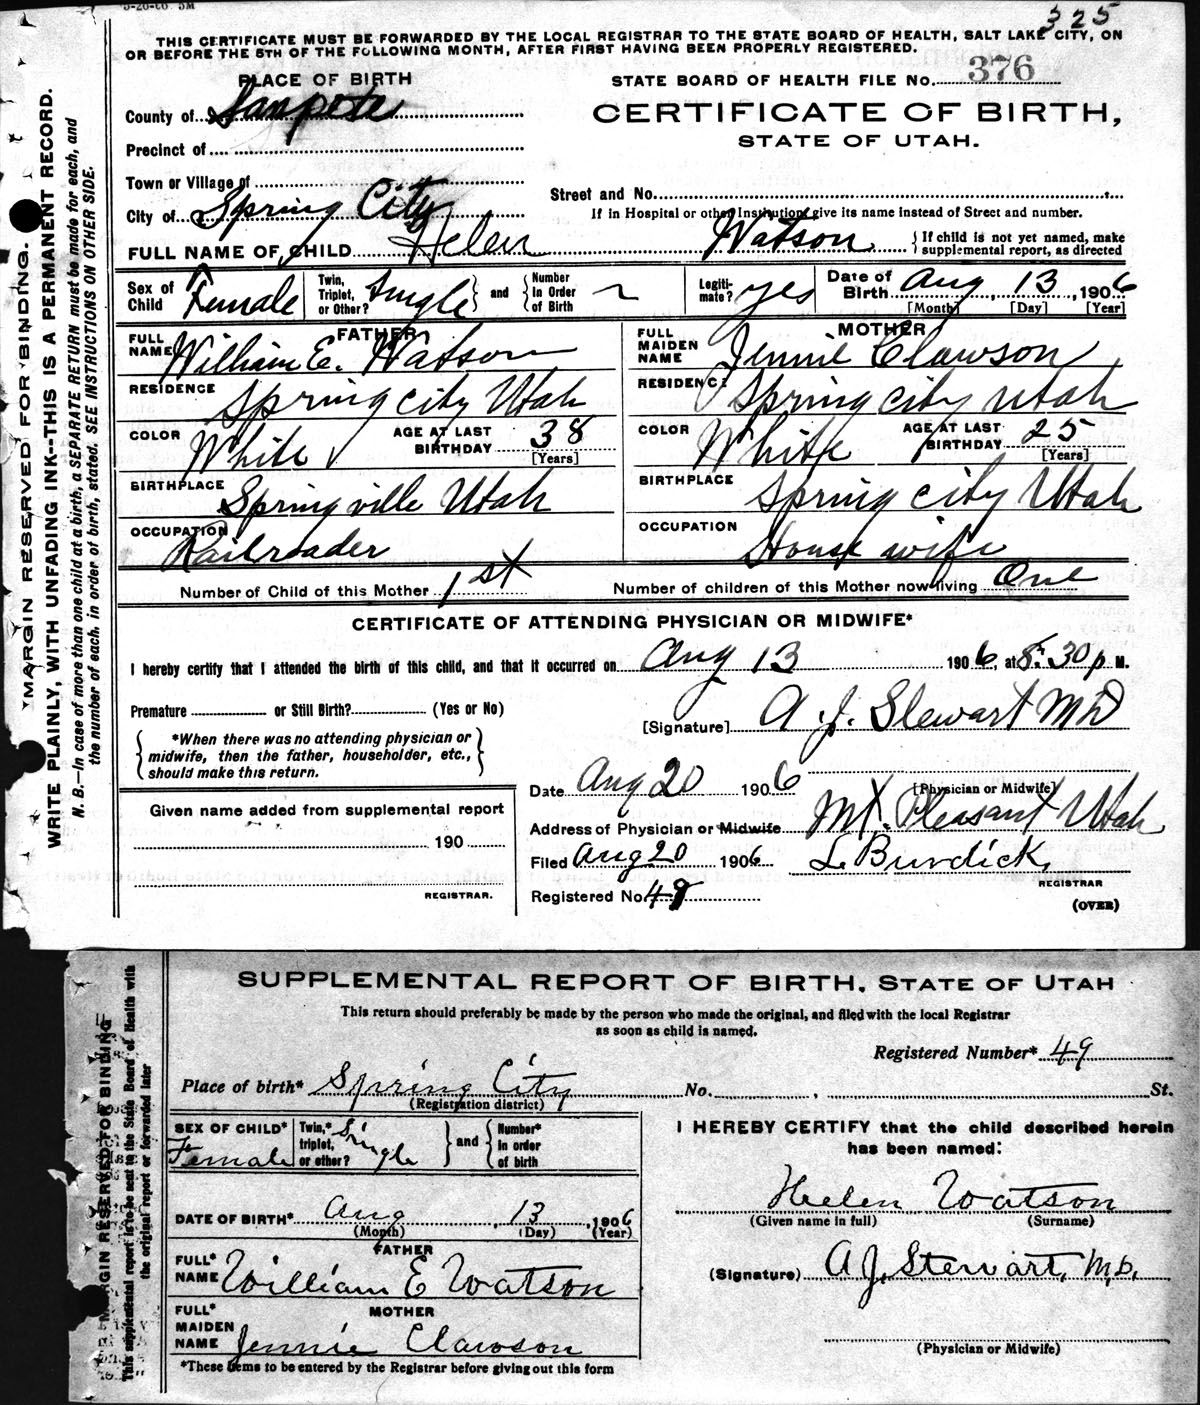 325
THIS CERTIFICATE MUST BE FORWARDED BY THE LOCAL REGISTRAR TO THE STATE BOARD OF HEALTH, SALT LAKE CITY, ON
OR BEFORE THE 5TH OF THE FOLLOWING MONTH, AFTER FIRST HAVING BEEN PROPERLY REGISTERED.
PLACE OF BIRTH
STATE BOARD OF HEALTH FILE NO. 376
County of Sanpete
CERTIFICATE OF BIRTH,
STATE OF UTAH.
Precinct of
Town or Village of
Street and No.
City of Spring City
If in Hospital or other Institution, give its name instead of Street and number.
FULL NAME OF CHILD Helen Watson { If child is not yet named, make supplemental report, as directed
Sex of Child Female Twin, Triplet, or Other? Single } and { Number in Order of Birth Legitimate? yes Date of Birth Aug, 13, 1906
[Month] [Day] [Year]
FATHER
MOTHER
FULL NAME William E. Watson
FULL MAIDEN NAME Jennie Clawson
RESIDENCE Spring city Utah
RESIDENCE Spring city Utah
COLOR White AGE AT LAST BIRTHDAY 38 [Years]
COLOR White AGE AT LAST BIRTHDAY 25 [Years]
BIRTHPLACE Springville Utah
BIRTHPLACE Spring city Utah
OCCUPATION Railroader
OCCUPATION House wife
Number of Child of this Mother 1st
Number of children of this Mother now living One
CERTIFICATE OF ATTENDING PHYSICIAN OR MIDWIFE*
I hereby certify that I attended the birth of this child, and that it occurred on Aug 13 1906, at 8:30 p M.
Premature or Still Birth? (Yes or No)
[Signature] A. J. Stewart MD
{ *When there was no attending physician or
midwife, then the father, householder, etc.,
should make this return. }
Date Aug 20 1906
[Physician or Midwife]
Address of Physician or Midwife Mt. Pleasant Utah
Given name added from supplemental report
190
REGISTRAR.
Filed Aug 20 1906 L Burdick,
REGISTRAR
Registered No. 49
(OVER)
MARGIN RESERVED FOR BINDING.
WRITE PLAINLY, WITH UNFADING INK--THIS IS A PERMANENT RECORD.
N. B.—In case of more than one child at a birth, a SEPARATE RETURN must be made for each, and
the number of each, in order of birth, stated. SEE INSTRUCTIONS ON OTHER SIDE.
SUPPLEMENTAL REPORT OF BIRTH, STATE OF UTAH
This return should preferably be made by the person who made the original, and filed with the local Registrar
as soon as child is named.
Registered Number* 49
Place of birth* Spring City No. , St.
(Registration district)
SEX OF CHILD* Female Twin,* triplet, or other? Single } and { Number* in order of birth
I HEREBY CERTIFY that the child described herein
has been named:
Helen Watson
(Given name in full) (Surname)
DATE OF BIRTH* Aug, 13, 1906
(Month) (Day) (Year)
FATHER
FULL* NAME William E Watson
(Signature) A J. Stewart, M.D.
MOTHER
FULL* MAIDEN NAME Jennie Clawson
(Physician or Midwife)
*These items to be entered by the Registrar before giving out this form
MARGIN RESERVED FOR BINDING
This supplemental report is to be sent to the State Board of Health with
the original report or forwarded later